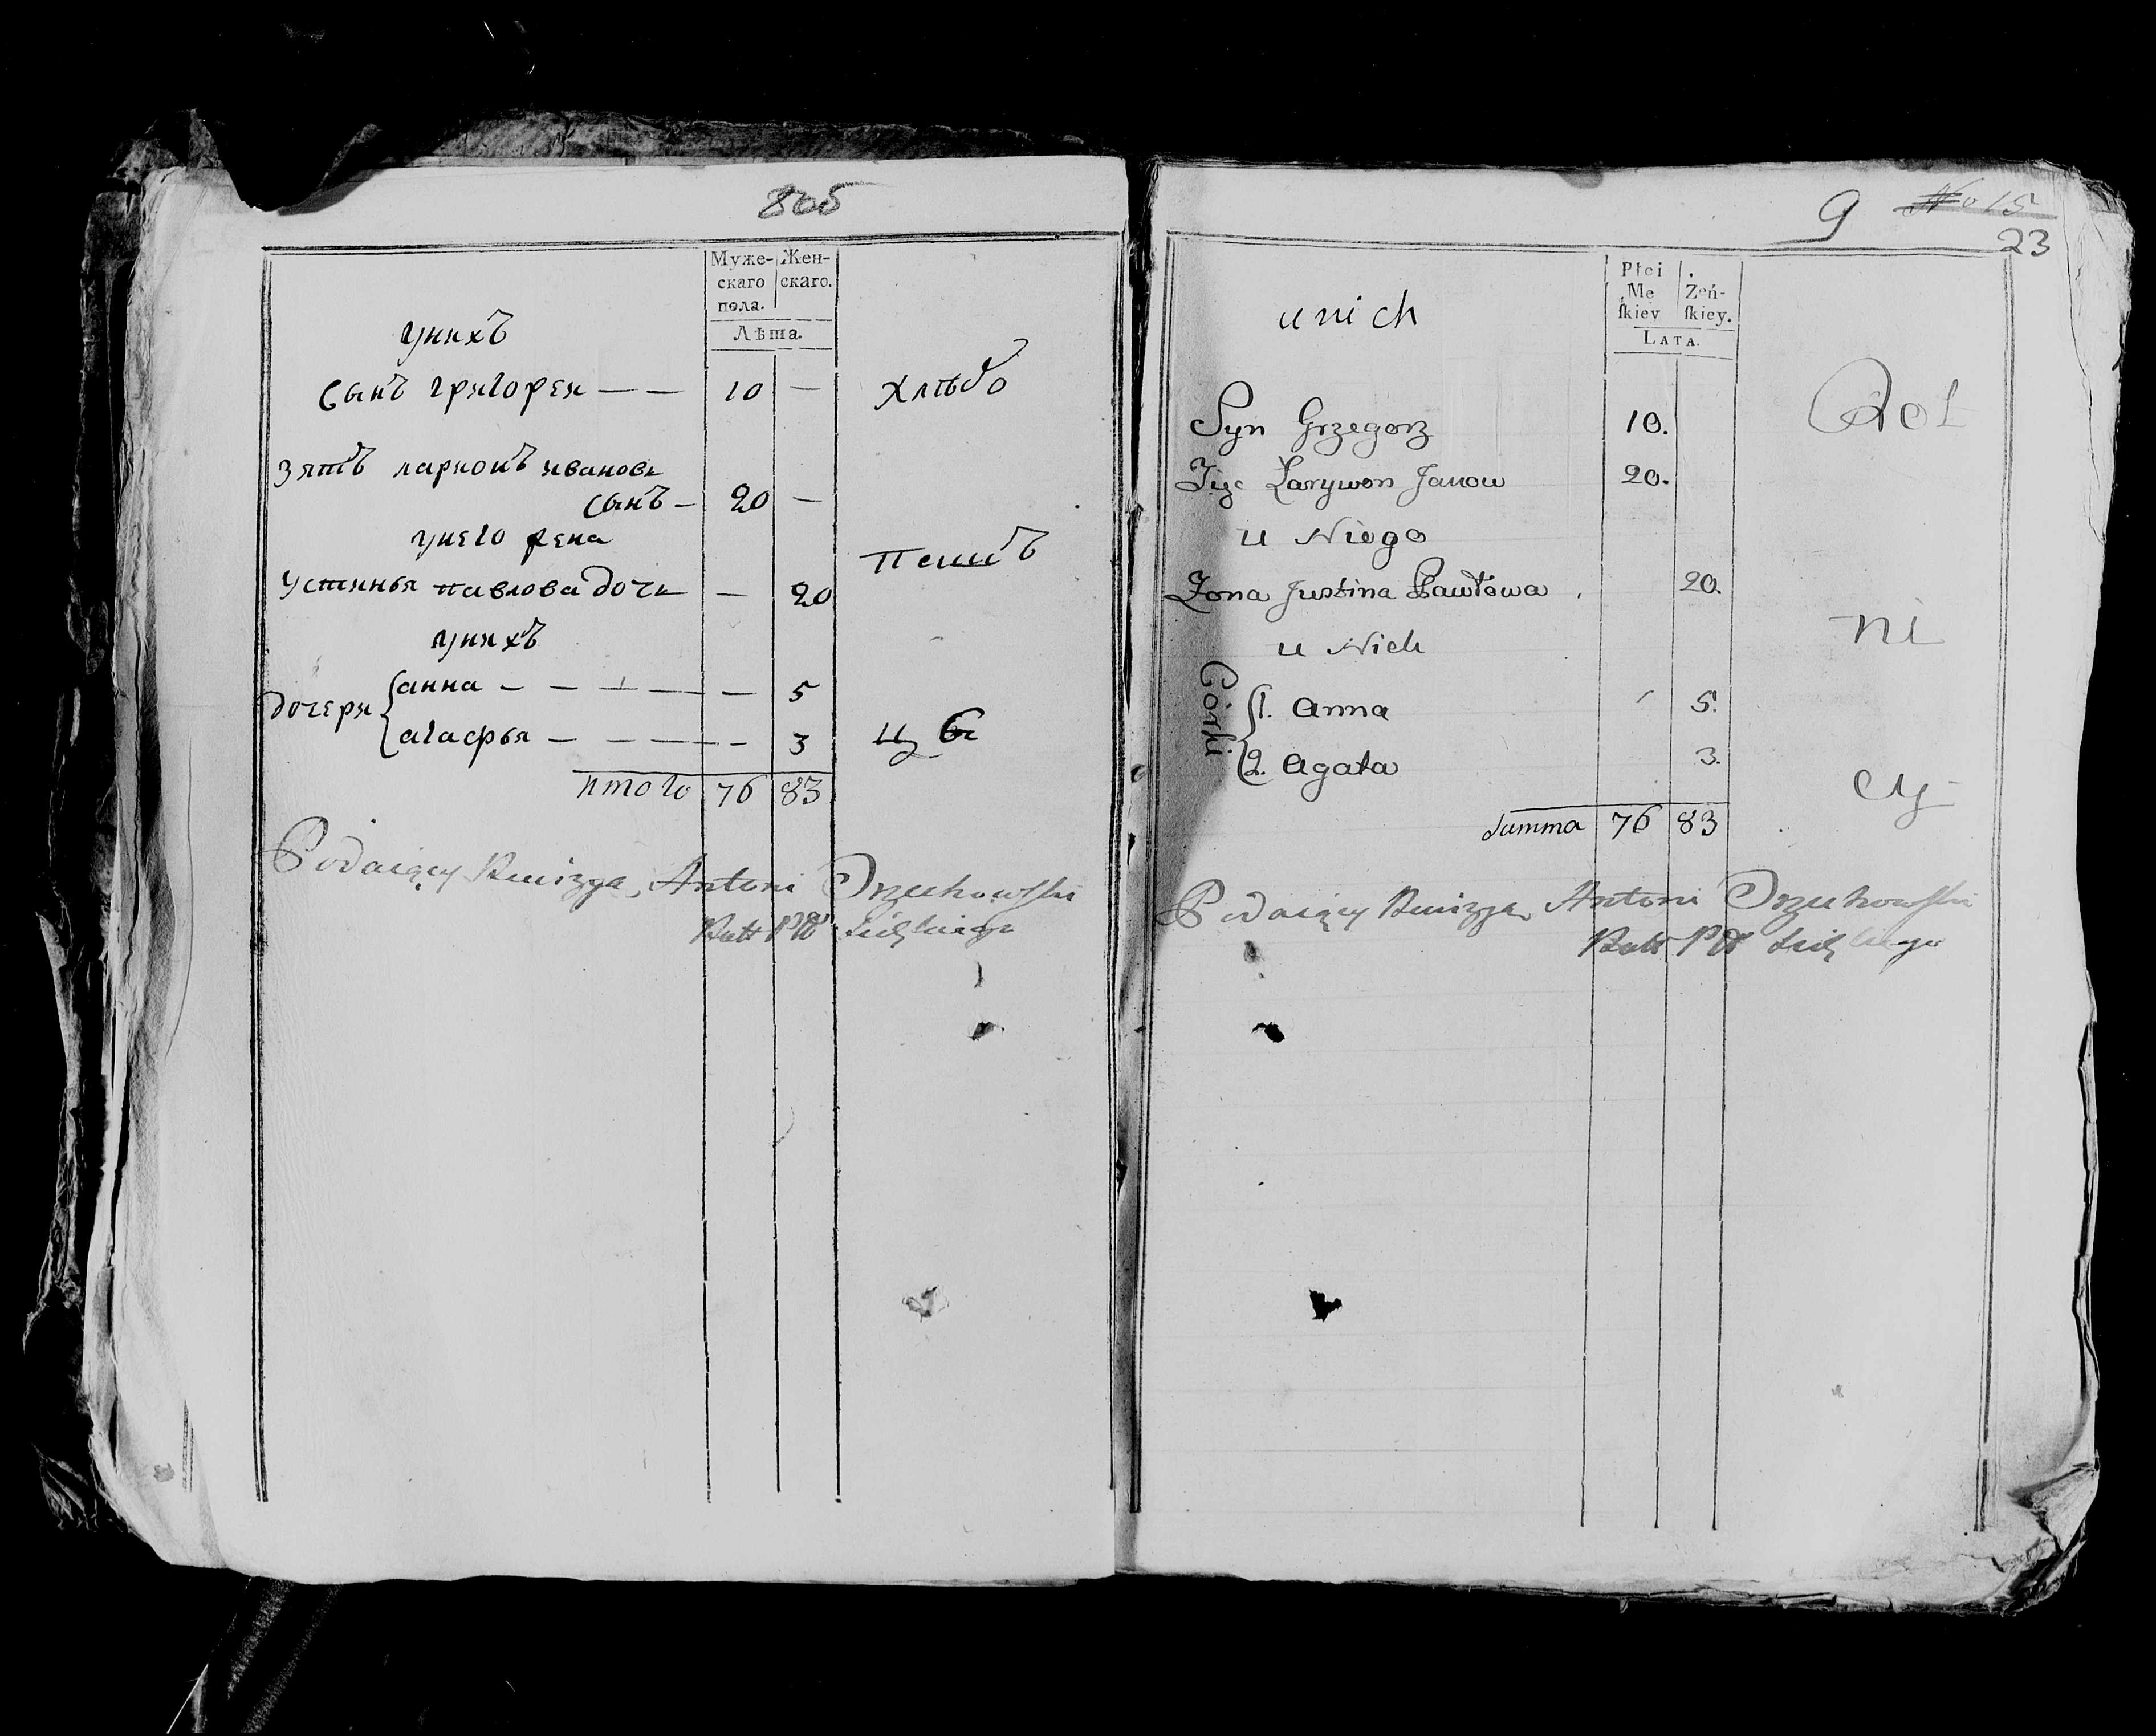 8об
Муже-
скаго
пола.
Жен-
скаго.
Лѣта.
унихъ
Сынъ григореи — — 10 —
хлѣбо
зятъ ларионъ ивановъ
сынъ — 20 —
унего жена
пашъ
устинья павлова дочь — 20
унихъ
дочери
анна — — — — — 5
агафья — — — — — 3
цы
итого 76 83
Podaiący Rewizyą Antoni Orzechowski
9 No 15
23
Płci
Mę
skiey
Zeń-
skiey.
LATA.
u nich
Syn Grzegorz 10.
Rol
Zięć Łarywon Janow 20.
u Niego
Zona Justina Pawłowa 20.
ni
u Nich
Córki
1. Anna 5.
2. Agata 3.
cy
Summa 76 83
Podaiący Rewizyą Antoni Orzechowski